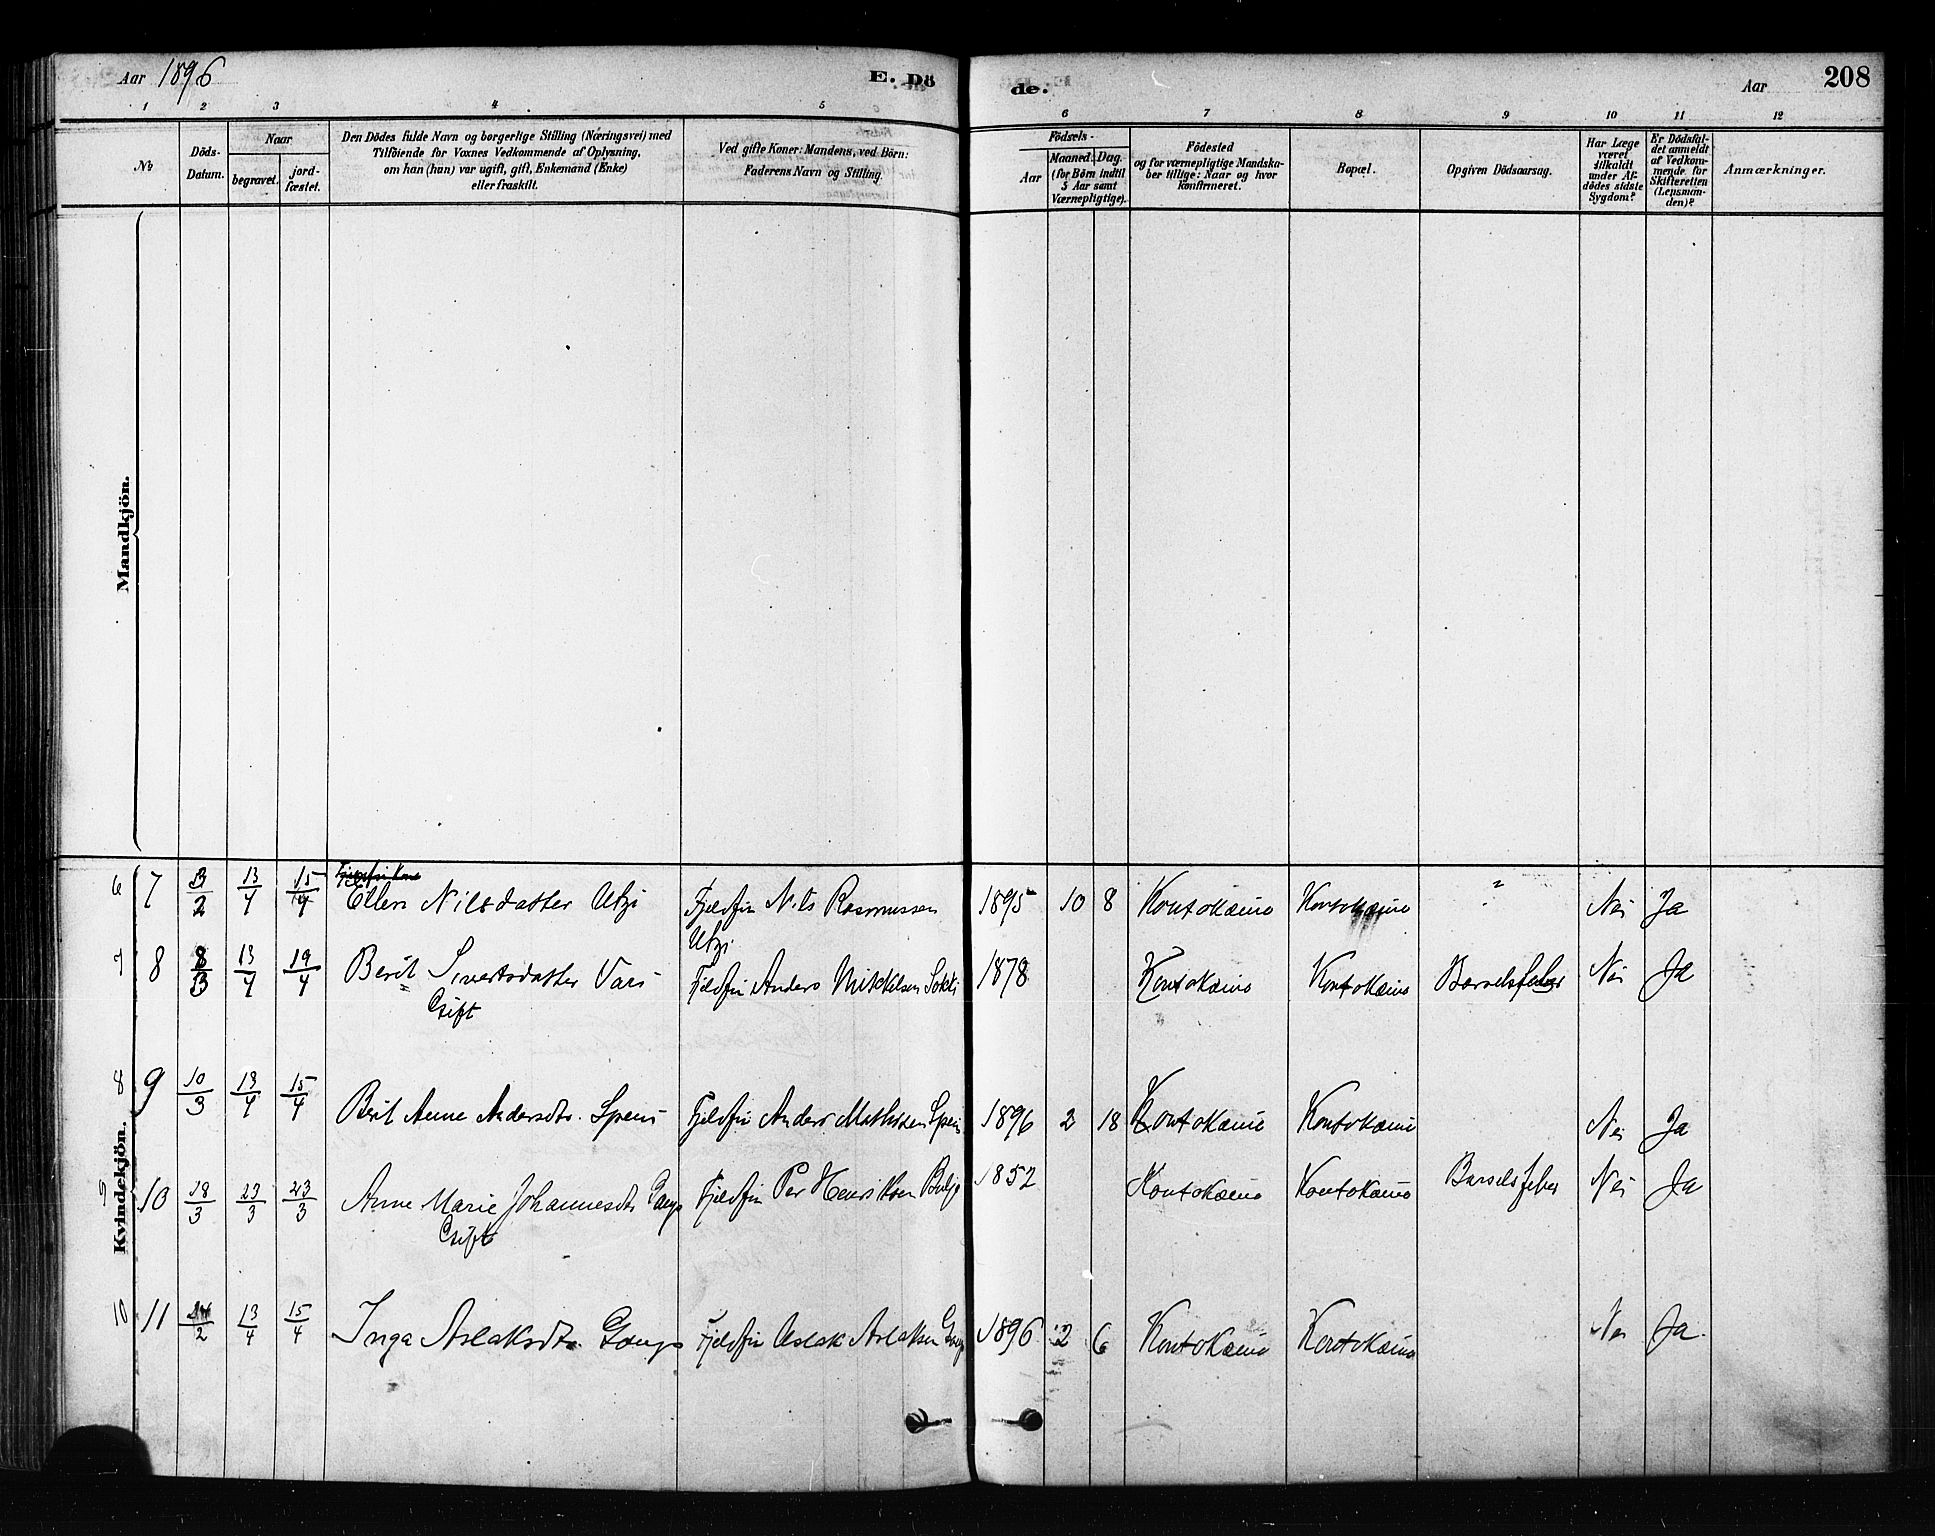 Aar 1896 E. Dö de. Aar 208
1 2 3 4 5 6 7 8 9 10 11 12
No
Döds-Datum.
Naar
begravet.
jord-fæstet.
Den Dödes fulde Navn og borgerlige Stilling (Næringsvei) med
Tilföiende for Voxnes Vedkommende af Oplysning,
om han (hun) var ugift, gift, Enkemand (Enke)
eller fraskilt.
Ved gifte Koner: Mandens, ved Börn:
Faderens Navn og Stilling.
Födsels-
Aar
Maaned. Dag.
(for Börn indtil
5 Aar samt
Værnepligtige).
Födested
og for værnepligtige Mandska-
ber tillige: Naar og hvor
konfirmeret.
Bopæl.
Opgiven Dödsaarsag.
Har Læge
været
tilkaldt
under Af-
dödes sidste
Sygdom?
Er Dödsfal-
det anmeldt
af Vedkom-
mende for
Skifteretten
(Lensman-
den)?
Anmærkninger.
Mandkjön.
Kvindekjön.
6 7 3/2 13/4 15/4 Ellen Nilsdatter Utzi Fjeldfin Nils Rasmussen 1895 10 8 Koutokæino Koutokæino ? Nei Ja
Utzi
7 8 8/3 13/4 19/4 Berit Sivertsdatter Vars Fjeldfin Anders Mitchelsen 1878 Koutokæino Koutokæino Barselsfeber Nei Ja
Gift
8 9 10/3 13/4 15/4 Berit Anne Andersdtr. Spein Fjeldfin Anders Mathisen Spein 1896 2 18 Koutokæino Koutokæino Nei Ja
9 10 18/3 23/3 23/3 Anne Marie Johannesdtr Gaup Fjeldfin Per Henriksen Buljo 1852 Koutokæino Koutokæino Barselsfeber Nei Ja
Gift
10 11 24/2 13/4 15/4 Inga Aslaksdtr. Gaup Fjeldfin Aslak Aslaksen Gaup 1896 2 6 Koutokæino Koutokæino Nei Ja.